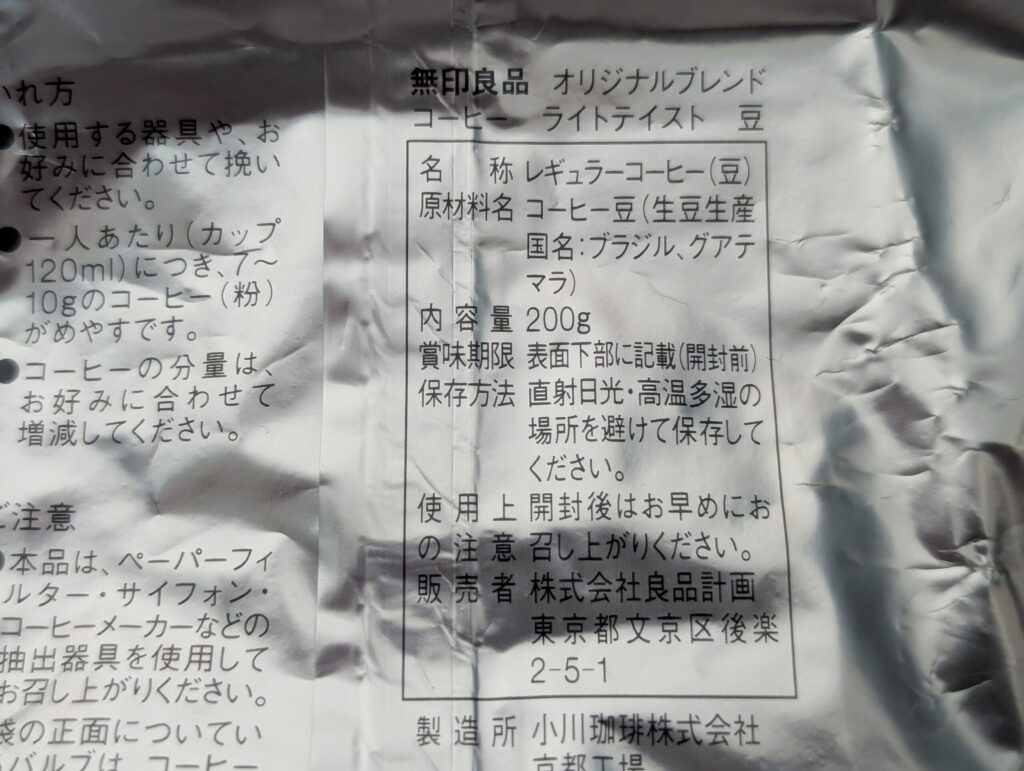 いれ方
●使用する器具や、お
好みに合わせて挽い
てください。
●一人あたり(カップ
120ml)につき、7〜
10gのコーヒー(粉)
がめやすです。
●コーヒーの分量は、
お好みに合わせて
増減してください。
ご注意
●本品は、ペーパーフィ
ルター・サイフォン・
コーヒーメーカーなどの
抽出器具を使用して
お召し上がりください。
袋の正面についてい
るバルブは、コーヒー
無印良品 オリジナルブレンド
コーヒー ライトテイスト 豆
名称 レギュラーコーヒー(豆)
原材料名 コーヒー豆(生豆生産
国名:ブラジル、グアテ
マラ)
内容量 200g
賞味期限 表面下部に記載(開封前)
保存方法 直射日光・高温多湿の
場所を避けて保存して
ください。
使用上 開封後はお早めにお
の注意 召し上がりください。
販売者 株式会社良品計画
東京都文京区後楽
2-5-1
製造所 小川珈琲株式会社
京都工場